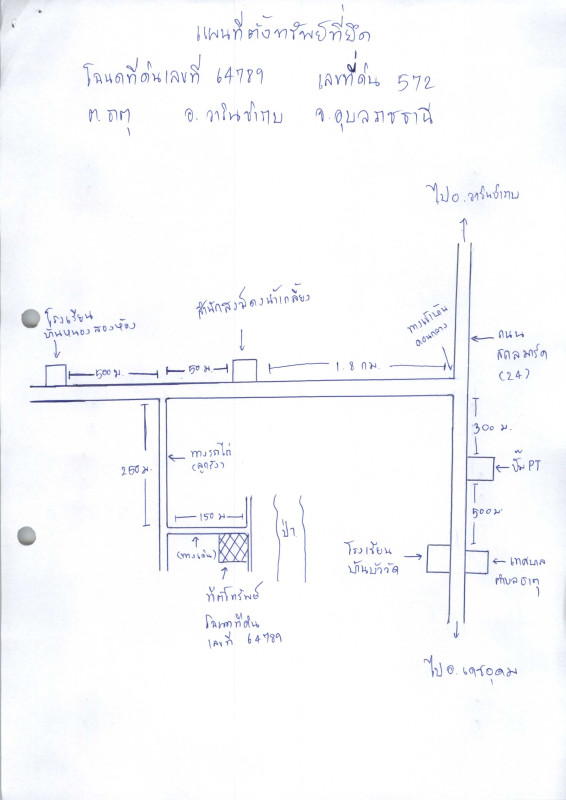 แผนที่ตั้งทรัพย์ที่ยึด
โฉนดที่ดินเลขที่ 64789 เลขที่ดิน 572
ต.ธาตุ อ.วารินชำราบ จ.อุบลราชธานี
ไป อ.วารินชำราบ
สำนักสงฆ์ดงน้ำเกลี้ยง
โรงเรียน
บ้านหนองสองห้อง
ทางเข้าบ้าน
ดอนกลาง
ถนน
สถลมาร์ค
(24)
500 ม.
50 ม.
1.8 กม.
300 ม.
250 ม.
ทางรถไถ
(ลูกรัง)
ปั๊ม PT
150 ม
ป่า
500 ม.
(ทางเดิน)
โรงเรียน
บ้านบัววัด
เทศบาล
ตำบลธาตุ
ที่ตั้งทรัพย์
โฉนดที่ดิน
เลขที่ 64789
ไป อ.เดชอุดม